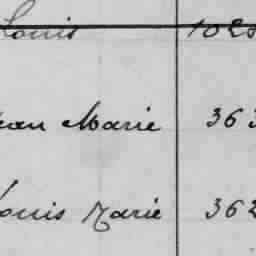 Louis 102
ean Marie 363
ouis Marie 362